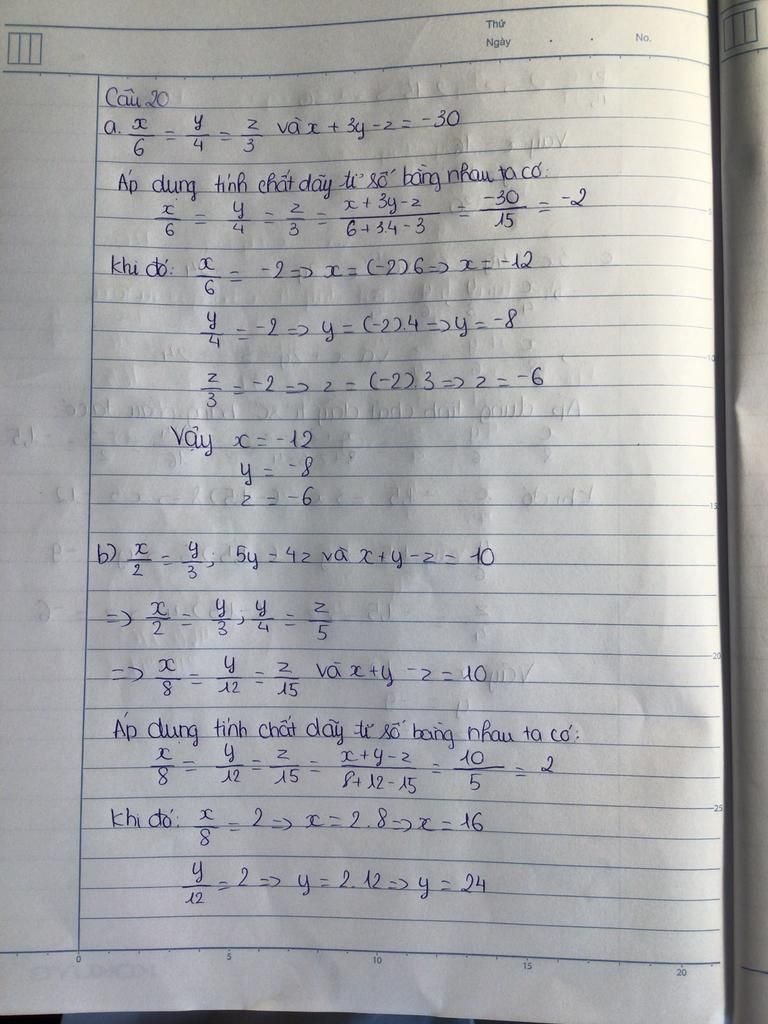 Thứ
Ngày . . No.
Câu 20
a. x/6 = y/4 = z/3 và x + 3y - z = -30
Áp dụng tính chất dãy tỉ số bằng nhau ta có:
x/6 = y/4 = z/3 = (x + 3y - z)/(6 + 3.4 - 3) = -30/15 = -2
Khi đó: x/6 = -2 => x = (-2)6 => x = -12
y/4 = -2 => y = (-2).4 => y = -8
z/3 = -2 => z = (-2).3 => z = -6
Vậy x = -12
y = -8
z = -6
b) x/2 = y/3; 5y = 4z và x + y - z = 10
=> x/2 = y/3; y/4 = z/5
=> x/8 = y/12 = z/15 và x + y - z = 10
Áp dụng tính chất dãy tỉ số bằng nhau ta có:
x/8 = y/12 = z/15 = (x + y - z)/(8 + 12 - 15) = 10/5 = 2
Khi đó: x/8 = 2 => x = 2.8 => x = 16
y/12 = 2 => y = 2.12 => y = 24
0 5 10 15 20